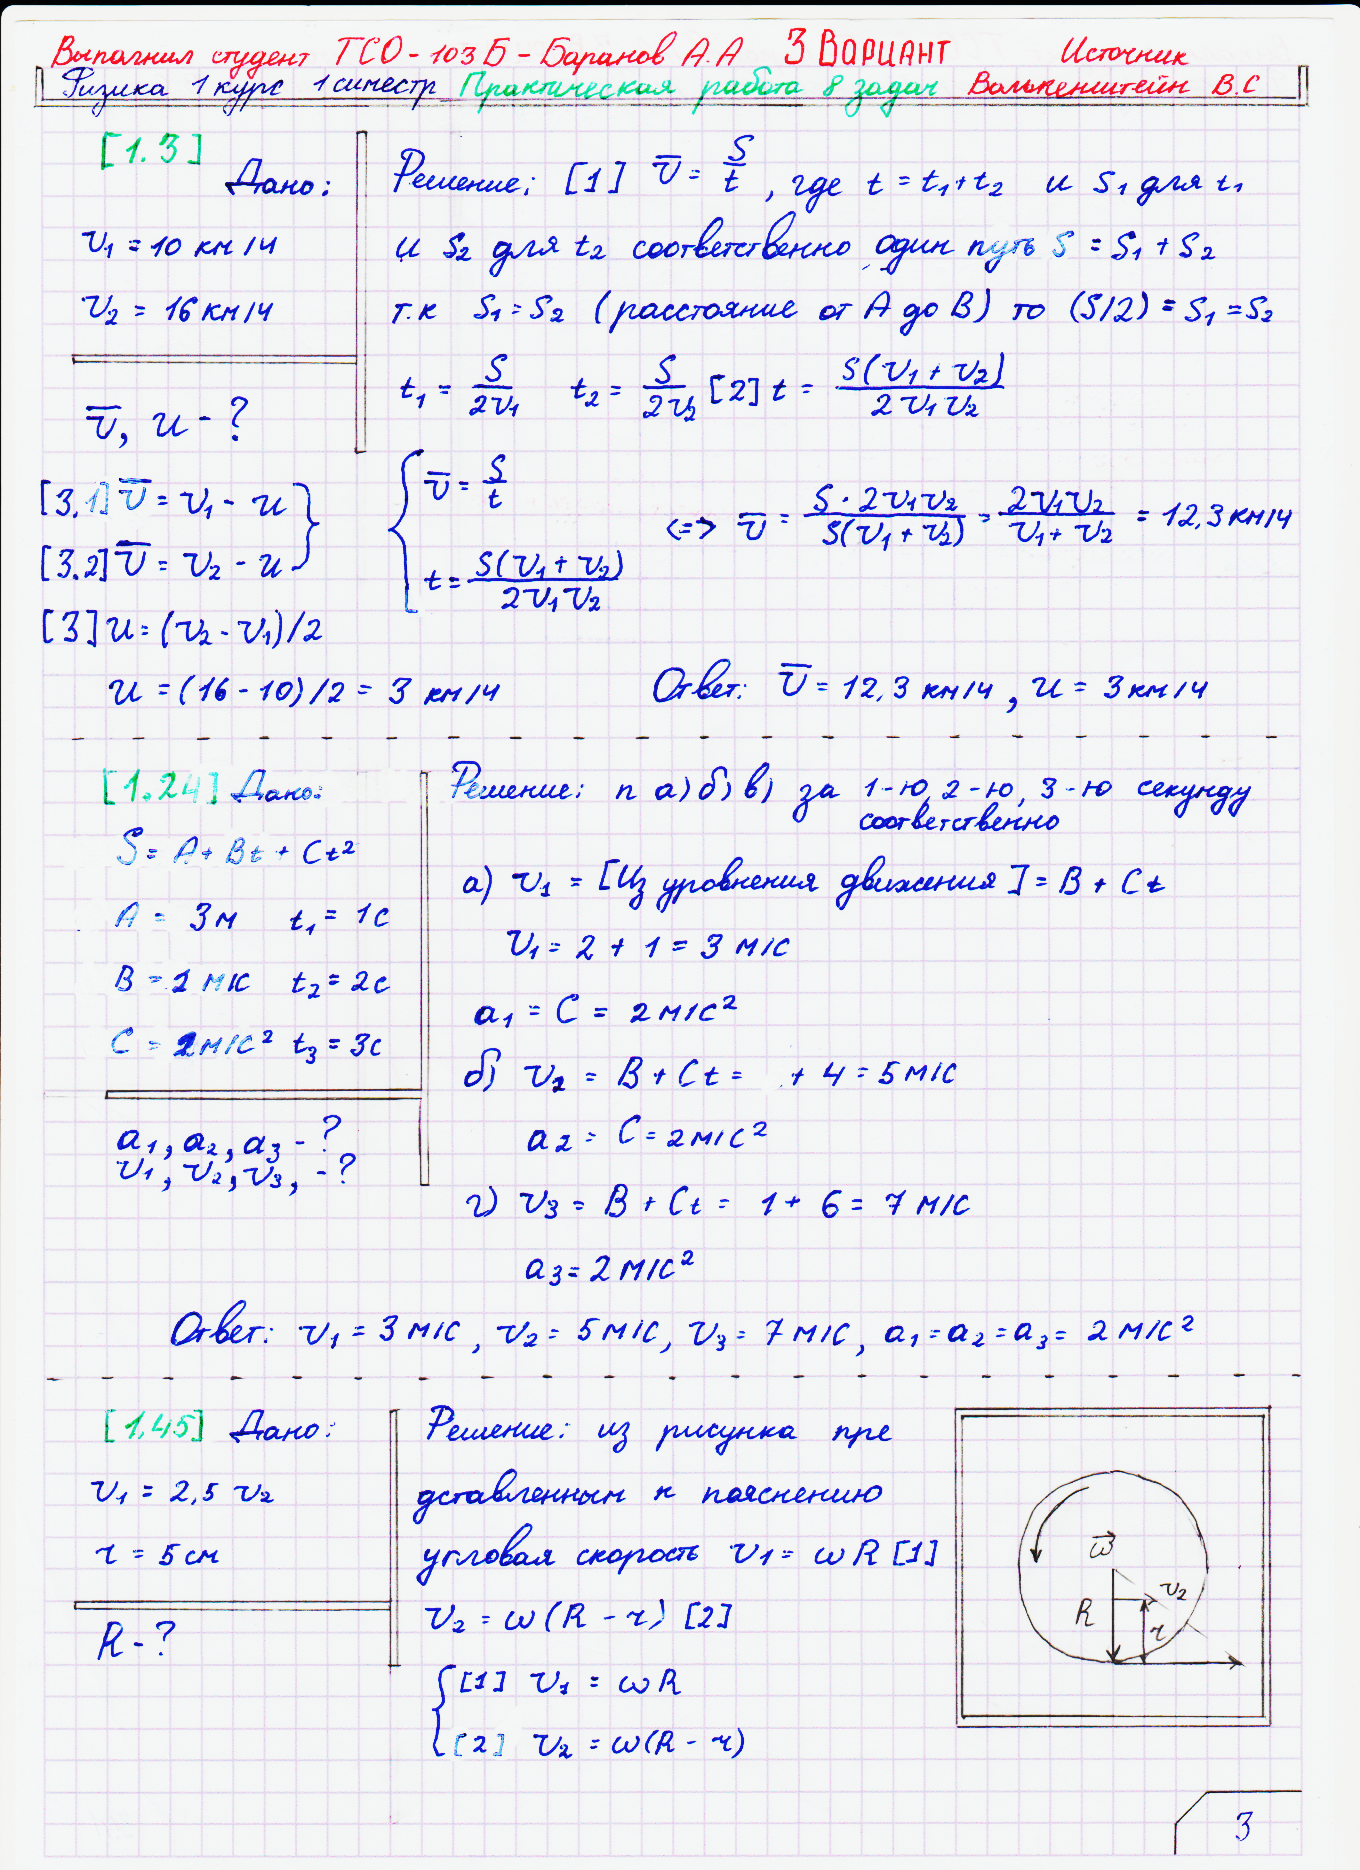 Выполнил студент ТСО-103Б - Баранов А.А 3 Вариант Источник
Физика 1 курс 1 симестр Практическая работа 8 задач Волькенштейн В.С
[1.3]
Дано:
v₁ = 10 км/ч
v₂ = 16 км/ч
v̅, u - ?
Решение: [1] v̅ = S/t , где t = t₁+t₂ и S₁ для t₁
и S₂ для t₂ соответственно один путь S = S₁ + S₂
т.к S₁ = S₂ (расстояние от А до В) то (S/2) = S₁ = S₂
t₁ = S/2v₁ t₂ = S/2v₂ [2] t = S(v₁ + v₂)/2v₁v₂
[3.1] v̅ = v₁ - u
[3.2] v̅ = v₂ - u
[3] u = (v₂ - v₁)/2
v̅ = S/t
t = S(v₁ + v₂)/2v₁v₂
<=> v̅ = S · 2v₁v₂/S(v₁ + v₂) = 2v₁v₂/v₁ + v₂ = 12,3 км/ч
u = (16 - 10)/2 = 3 км/ч Ответ: v̅ = 12,3 км/ч , u = 3 км/ч
[1.24] Дано:
S = A + Bt + Ct²
A = 3 м t₁ = 1 с
B = 2 м/с t₂ = 2 с
C = 2 м/с² t₃ = 3 с
a₁, a₂, a₃ - ?
v₁, v₂, v₃, - ?
Решение: п а) б) в) за 1-ю, 2-ю, 3-ю секунду
соответственно
а) v₁ = [Из уровнения движения] = B + Ct
v₁ = 2 + 1 = 3 м/с
a₁ = C = 2 м/с²
б) v₂ = B + Ct = + 4 = 5 м/с
a₂ = C = 2 м/с²
г) v₃ = B + Ct = 1 + 6 = 7 м/с
a₃ = 2 м/с²
Ответ: v₁ = 3 м/с , v₂ = 5 м/с, v₃ = 7 м/с , a₁ = a₂ = a₃ = 2 м/с²
[1.45] Дано:
v₁ = 2,5 v₂
r = 5 см
R - ?
Решение: из рисунка пре
дставленным к пояснению
угловая скорость v₁ = ωR [1]
v₂ = ω(R - r) [2]
[1] v₁ = ωR
[2] v₂ = ω(R - r)
ω⃗
v₂
R
r
3